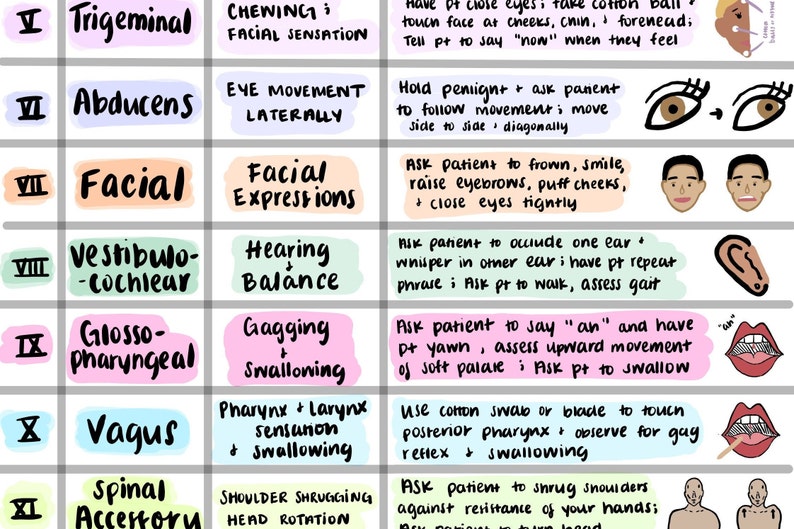 V
Trigeminal
CHEWING ;
FACIAL SENSATION
Have pt close eyes ; take cotton ball +
touch face at cheeks, chin, + forehead ;
Tell pt to say "now" when they feel
VI
Abducens
EYE MOVEMENT
LATERALLY
Hold penlight + ask patient
to follow movement ; move
side to side + diagonally
VII
Facial
Facial
Expressions
ASK patient to frown, smile,
raise eyebrows, puff cheeks,
+ close eyes tightly
VIII
Vestibulo-
-cochlear
Hearing
+
Balance
ASK patient to occlude one ear +
whisper in other ear ; have pt repeat
phrase ; ASK pt to walk, assess gait
IX
Glosso-
pharyngeal
Gagging
+
Swallowing
ASK patient to say "ah" and have
pt yawn , assess upward movement
of soft palate ; ASK pt to swallow
"ah"
X
Vagus
Pharynx + Larynx
sensation
+ swallowing
USE cotton swab or blade to touch
posterior pharynx + observe for gag
reflex + swallowing
XI
Spinal
Accessory
SHOULDER SHRUGGING
HEAD ROTATION
ASK patient to shrug shoulders
against resistance of your hands;
ASK patient to turn head